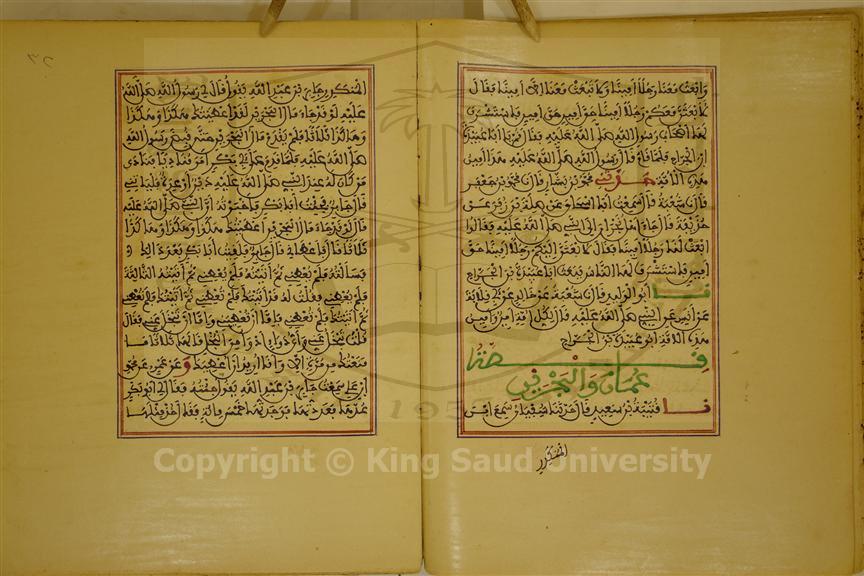 وابعث معنا رجلا امينا ولا تبعث معنا الا امينا فقال
لابعثن معكم رجلا امينا حق امين حق امين فاستشرف
لها اصحاب رسول الله صلى الله عليه فقال قم يا ابا عبيدة
ابن الجراح فلما قام قال رسول الله صلى الله عليه هذا امين
هذه الامة حدثني محمد بن بشار قال نا محمد بن جعفر
قال نا شعبة قال سمعت ابا اسحاق عن صلة بن زفر عن
حذيفة قال جاء اهل نجران الى النبي صلى الله عليه فقالوا
ابعث لنا رجلا امينا فقال لابعثن اليكم رجلا امينا حق
امين فاستشرف لها الناس فبعث ابا عبيدة بن الجراح
نا ابو الوليد قال نا شعبة عن خالد عن ابي قلابة
عن انس عن النبي صلى الله عليه قال لكل امة امين وامين
هذه الامة ابو عبيدة بن الجراح
قصة
عمان والبحرين
نا قتيبة بن سعيد قال نا سفيان سمع ابن
المنكدر
المنكدر جابر بن عبد الله يقول قال لي رسول الله صلى الله
عليه لو قد جاء مال البحرين لقد اعطيتك هكذا وهكذا
وهكذا ثلاثا فلم يقدم مال البحرين حتى قبض رسول الله
صلى الله عليه فلما قدم على ابي بكر امر مناديا فنادى
من كان له عند النبي صلى الله عليه دين او عدة فلياتني
قال جابر فجئت ابا بكر فاخبرته ان النبي صلى الله عليه
قال لو قد جاء مال البحرين اعطيتك هكذا وهكذا وهكذا
ثلاثا قال فاعطاني قال جابر فلقيت ابا بكر بعد ذلك
فسالته فلم يعطني ثم اتيته فلم يعطني ثم اتيته الثالثة
فلم يعطني فقلت له قد اتيتك فلم تعطني ثم اتيتك فلم تعطني
ثم اتيتك فلم تعطني فاما ان تعطني واما ان تبخل عني فقال
قلت تبخل عني واي داء ادوا من البخل قالها ثلاثا ما
منعتك من مرة الا وانا اريد ان اعطيك وعن عمرو عن محمد
ابن علي سمعت جابر بن عبد الله يقول جئته فقال لي ابو بكر
عدها فعددتها فوجدتها خمس مائة فقال خذ مثلها
Copyright © King Saud University
1957